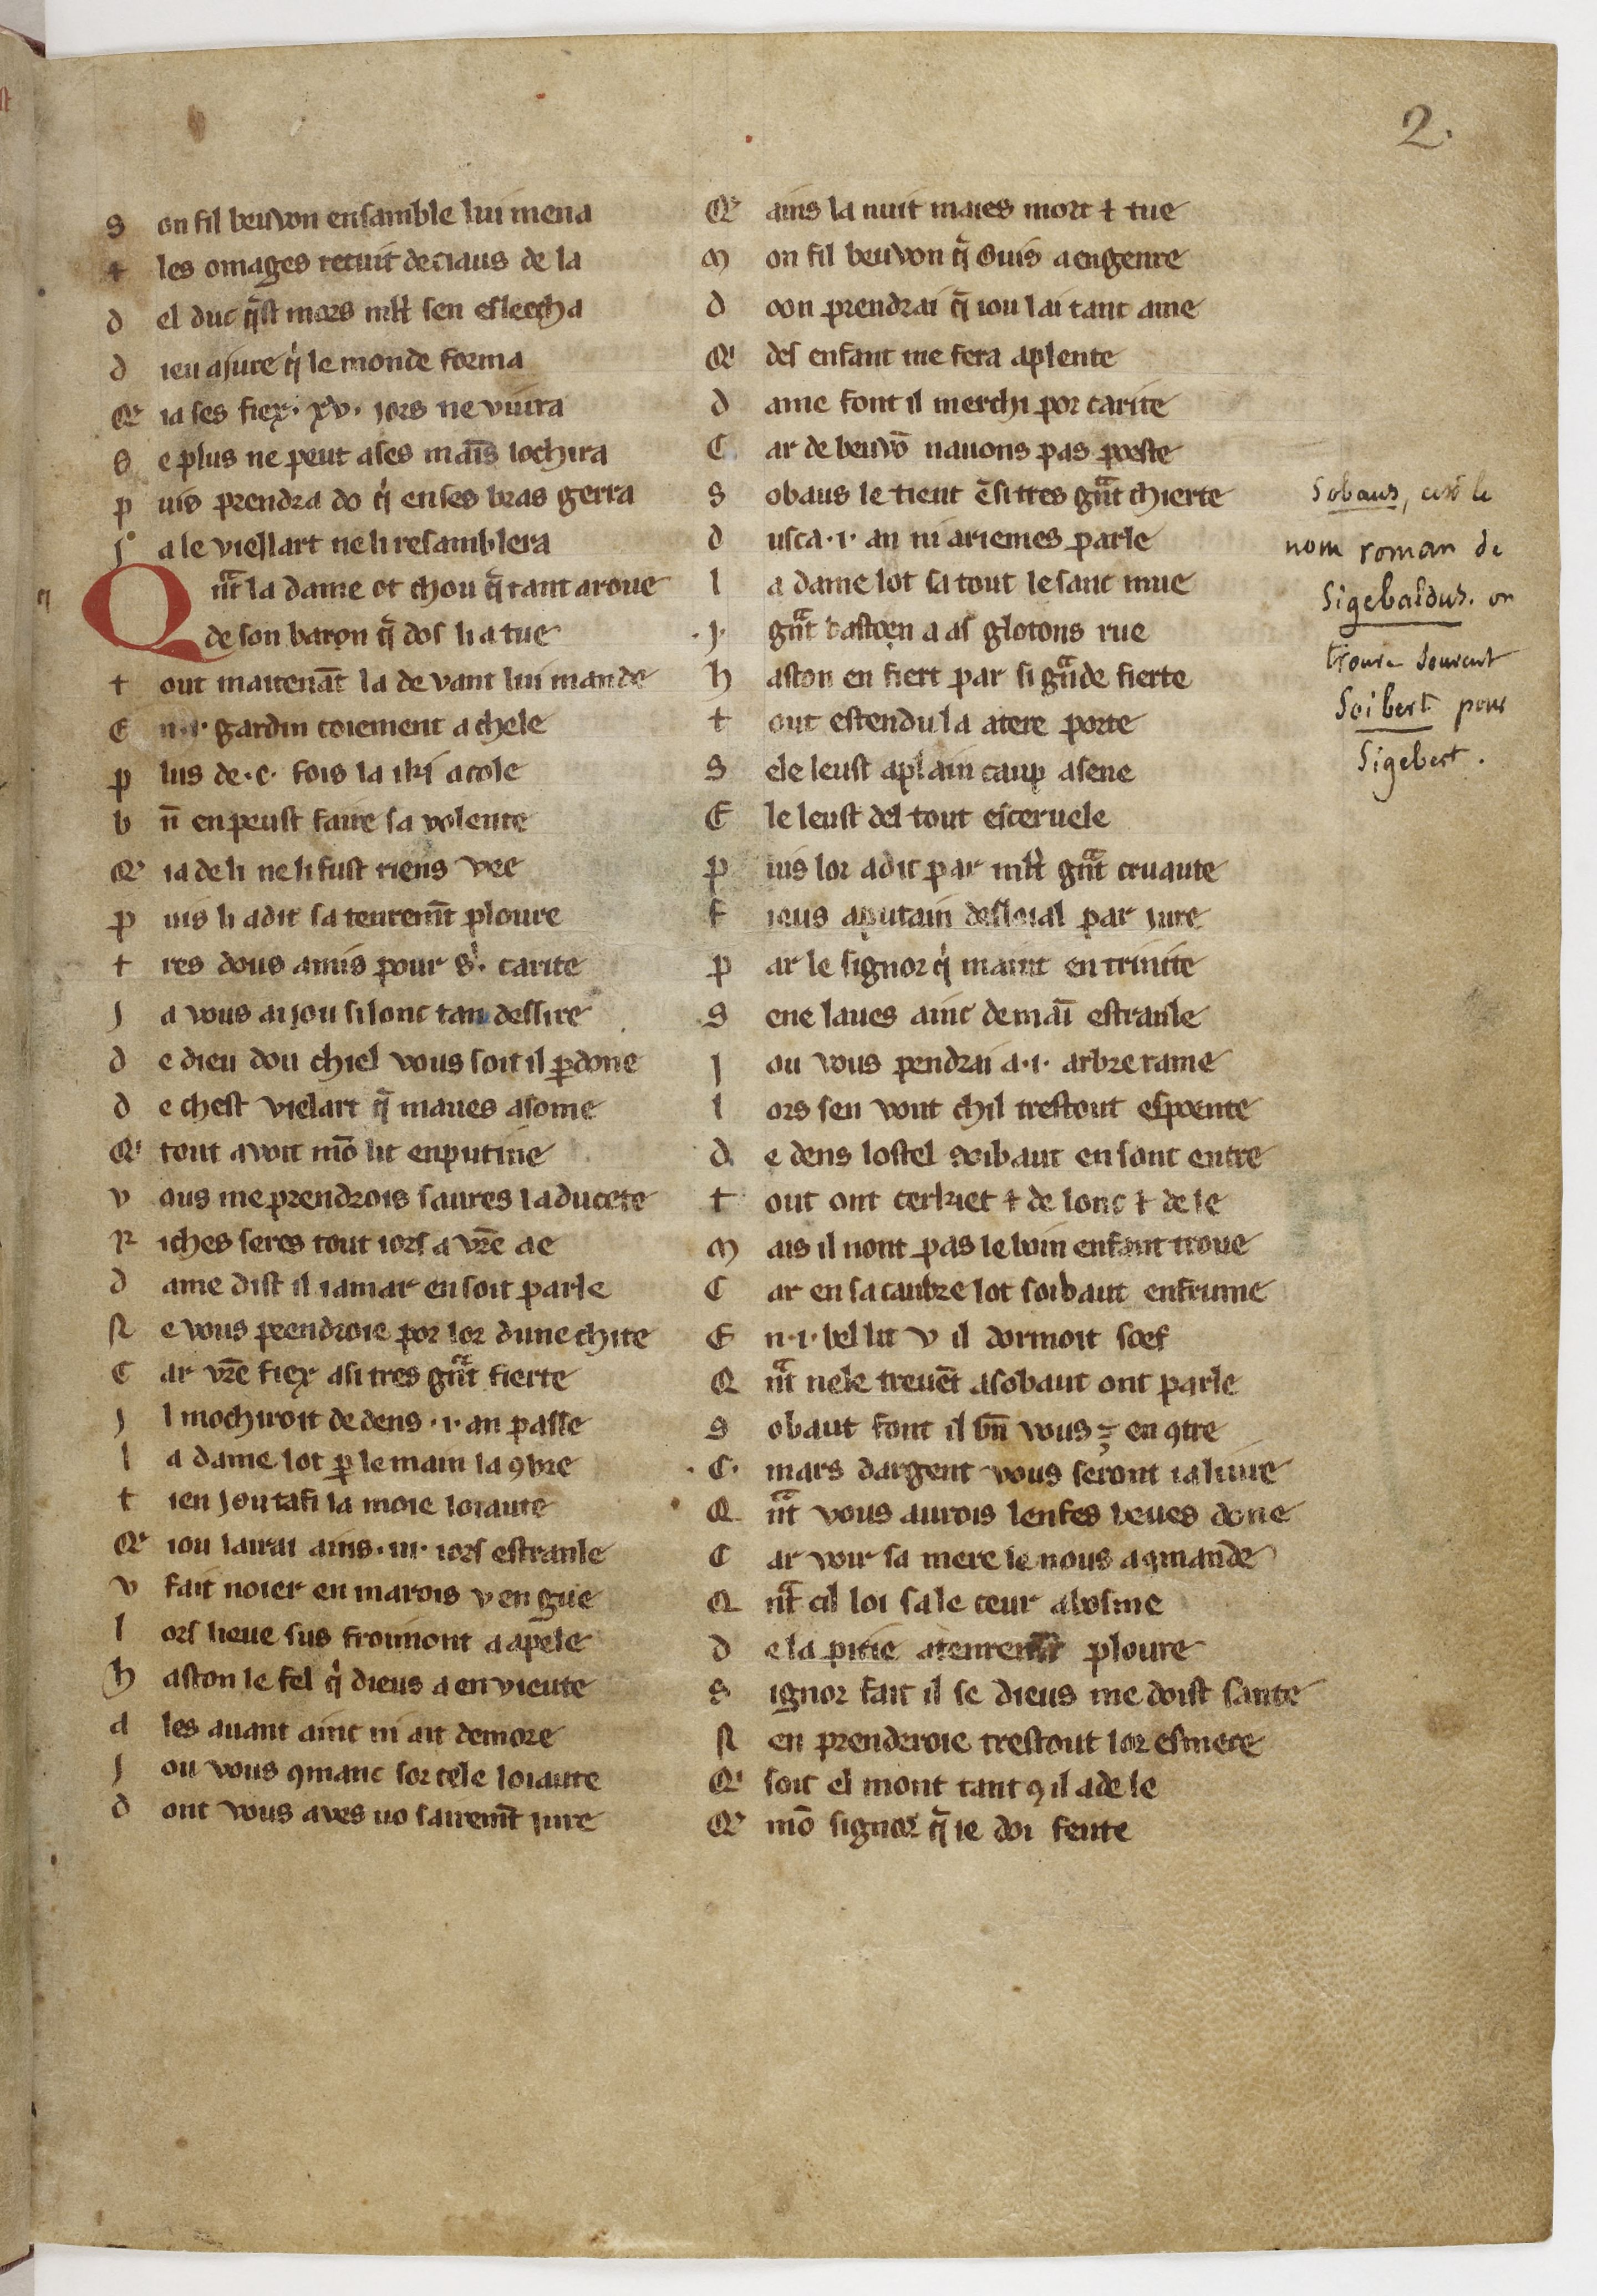 2.
s on fil beuvon ensamble lui mena
⁊ les omages retuit de ciaus de la
d el duc q̃st mors ml̃t sen esleecha
d ieu a jure q̇ le monde forma
Q' ia ses fiex · xv · jors ne vivra
s e plus ne peut a ses mais̃ lochira
p uis prendra do q̇ en ses bras gerra
j a le viellart ne li resamblera
Qñt la dame ot chou q̃ tant a roue
de son baron q̃ dos li a tue
t out maitenãt la devant lui mande
E n · i · gardin coiement a chele
p lus de · c · fois la iki acole
b ñ en peust faire sa volente
Q' ia de li ne li fust riens vee
p uis li a dit sa tenrem̃t ploure
t res dous amis pour s' · carite
j a vous ai jou si lonc tan dessire
d e dieu dou chiel vous soit il ꝑdone
d e chest vielart q̃ maues asome
Q' tout avoit mõ lit enputine
v ous me prendrois saures la ducete
R iches seres tout iors a vr̃e ae
d ame dist il ia mar en soit parle
N e vous prendroie por lor dune chite
C ar vr̃e fiex a si tres gñt fierte
j l mochiroit dedens · i · an passe
l a dame lot ꝑ le main la ꝯbre
t ien jou tafi la moie loiaute
Q' iou laurai ains · iii · iors estranle
v fait noier en marois v en gue
l ors lieue sus froimont a apele
h aston le fel q̇ dieus a en vieute
a les auant ainc ni ait demore
j ou vous ꝯmanc sor tele loiaute
d ont vous aves uo sairem̃t jure
Q' ains la nuit maies mort ⁊ tue
m on fil beuvon q̃ Guis a engenre
d oon prendrai q̃ iou lai tant ame
Q' des enfant me fera a plente
d ame font il merchi por carite
C ar de beuvõ nauons pas poeste
s obaus le tient ẽ si tres gñt chierte
d usca · i · an ni ariemes parle
l a dame lot sa tout le sanc mue
· j · gñt baston a as glotons rue
h aston en fiert par si gñde fierte
t out estendu la a tere porte
S ele leust a plain caup asene
E le leust del tout escervele
p uis lor a dit par ml̃t gñt cruaute
f ieus a putain desloial par jure
p ar le signor q̇ maint en trinite
S ene laues ainc demaĩ estranle
j ou vous pendrai a · i · arbre rame
l ors sen vont chil trestout espoente
d e dens lostel soibaut en sont entre
t out ont cerkiet ⁊ de lonc ⁊ de le
m ais il nont pas le boin enfant troue
C ar en sa canbre lot soibaut enfrume
E n · i · bel lit v il dormoit soef
Q ñt nele treuẽt a sobaut ont parle
s obaut font il bñ vous ē en ꝯtre
· C · mars dargent vous seront ia livre
Q ñt vous aurois lenfes beues done
C ar voir sa mere le nous a ꝯmande
Q ñt cil loi sa le ceur abosme
d e la pitie a tenrem̃t ploure
S ignor fait il se dieus me doist sante
N en prenderoie trestout lor esmere
Q' soit el mont tant ꝯ il a de le
Q' mõ signor q̃ ie doi feute
Sobaus, c'est le
nom roman de
Sigebaldus. on
trouve souvent
Soibert pour
Sigebert.